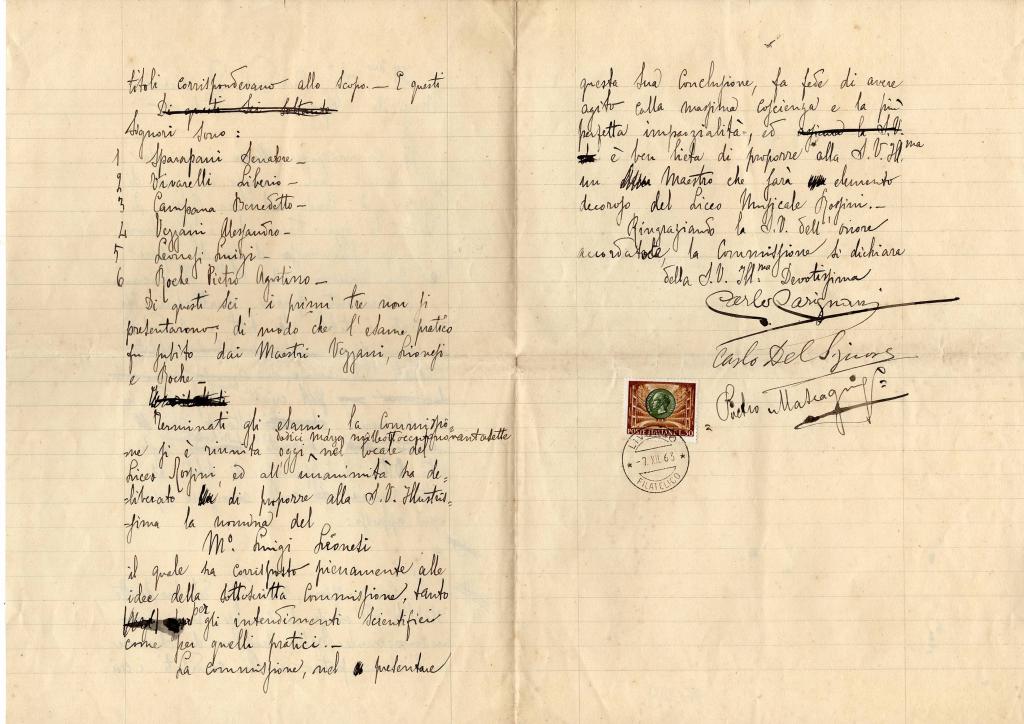 titoli corrispondevano allo scopo. — E questi
Di questi sei soltanto
Signori sono :
1 Sparapani Senatore —
2 Vivarelli Liberio —
3 Campana Benedetto —
4 Vezzani Alessandro —
5 Leonesi Luigi —
6 Roche Pietro Agostino —
Di questi sei, i primi tre non si
presentarono, di modo che l'esame pratico
fu subito dai Maestri Vezzani, Lionesi
e Roche —
Terminati gli esami la Commissio-
dodici marzo milleottocentonovantasette
ne si è riunita oggi nel locale del
Liceo Rossini, ed all'unanimità ha de-
liberato di proporre alla S. V. Illustris-
sima la nomina del
M.º Luigi Lionesi
il quale ha corrisposto pienamente alle
idee della sottoscritta Commissione, tanto
per gli intendimenti scientifici
come per quelli pratici. —
La Commissione, nel presentare
questa sua conclusione, fa fede di avere
agito colla massima coscienza e la più
perfetta imparzialità, ed la S. V.
è ben lieta di proporre alla S. V. Ill.ma
un Maestro che sarà elemento
decoroso del Liceo Musicale Rossini. —
Ringraziando la S. V. dell'onore
accordatole, la Commissione si dichiara
della S. V. Ill.ma Devotissima
Carlo Carignani
Carlo Del Signore
Pietro Mascagni
POSTE ITALIANE L. 30
-7.XII.63
FILATELICO